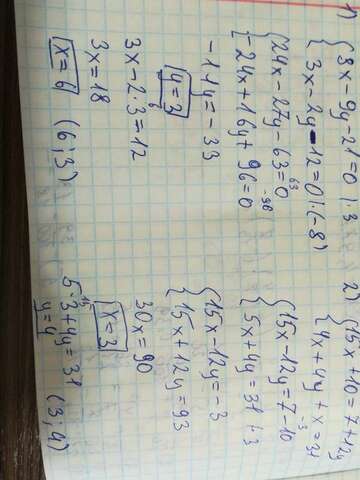 1) { 8x - 9y - 21 = 0 | · 3
{ 3x - 2y - 12 = 0 | · (-8)
{ 24x - 27y - 63 = 0
{ -24x + 16y + 96 = 0
-11y = -33
y = 3
3x - 2 · 3 = 12
3x = 18
x = 6 (6; 3)
2) { 15x + 10 = 7 + 12y
{ 4x + 4y + x = 31
{ 15x - 12y = 7 - 10
{ 5x + 4y = 31 | · 3
{ 15x - 12y = -3
{ 15x + 12y = 93
30x = 90
x = 3
5 · 3 + 4y = 31 (3; 4)
y = 4